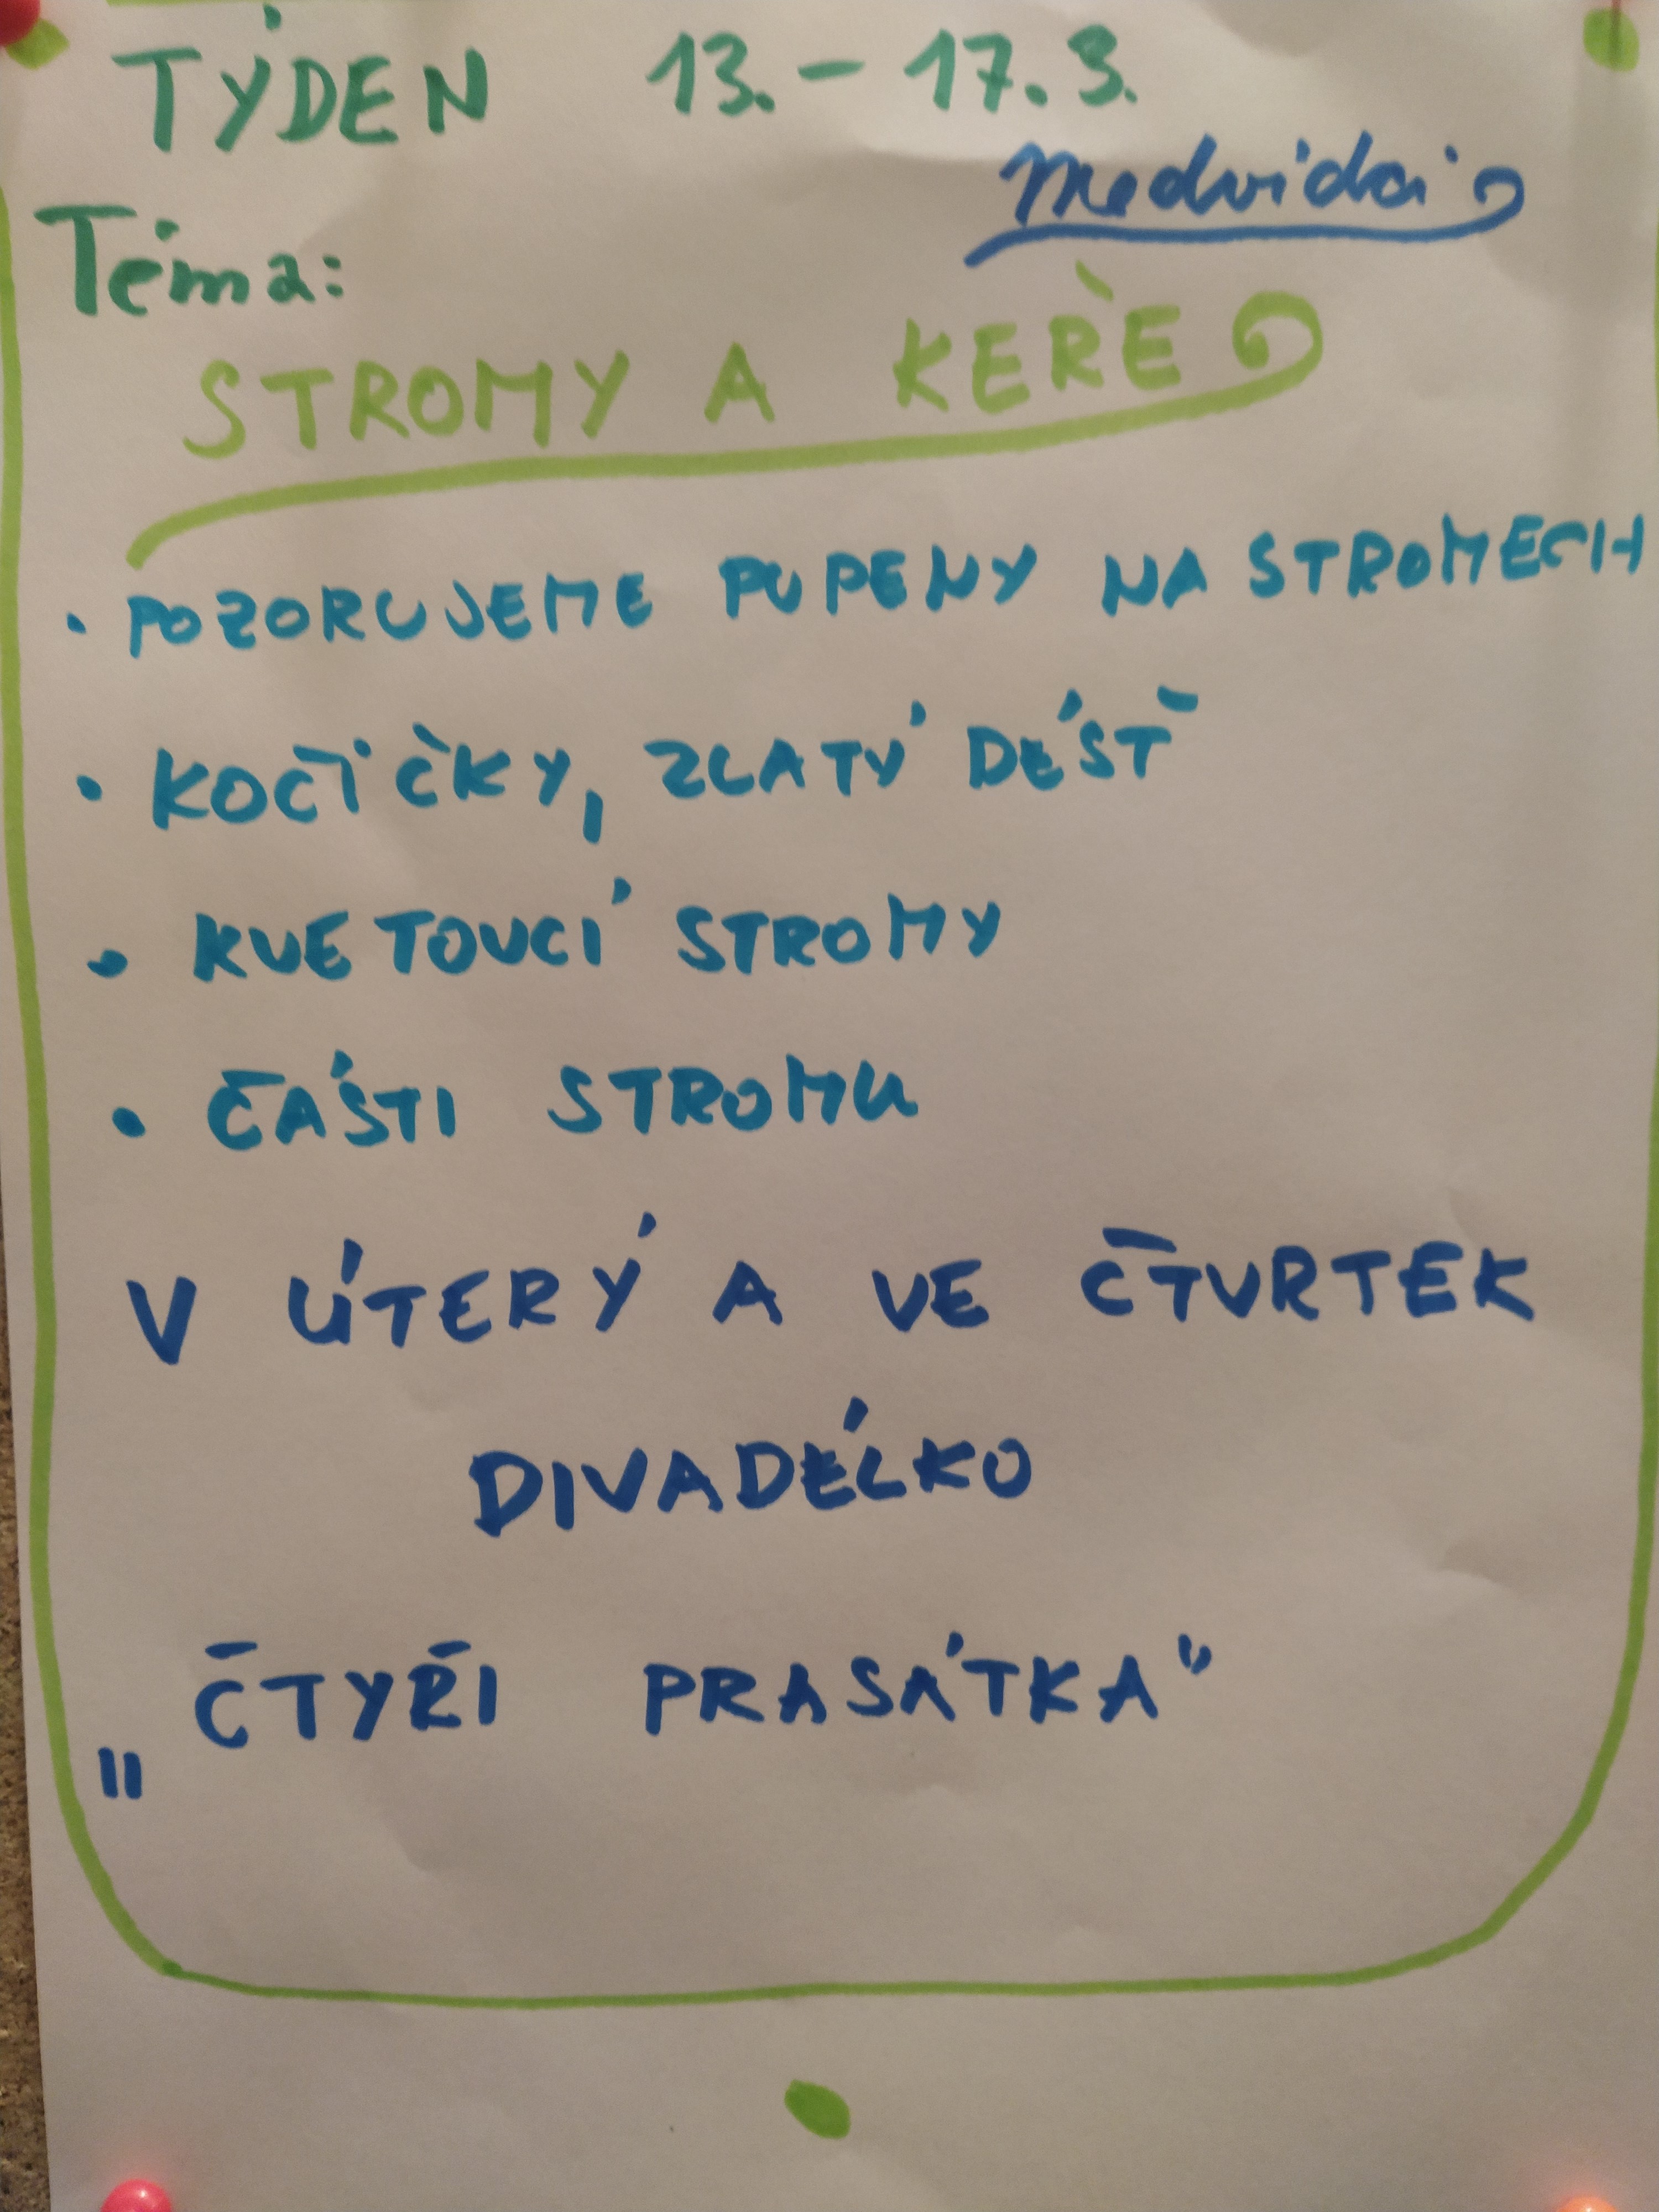 TÝDEN 13. - 17. 3.
Medvíďai
Téma:
STROMY A KEŘE
• POZORUJEME PUPENY NA STROMECH
• KOČIČKY, ZLATÝ DÉŠŤ
• KVETOUCÍ STROMY
• ČÁSTI STROMU
V ÚTERÝ A VE ČTVRTEK
DIVADÉLKO
„ČTYŘI PRASÁTKA"